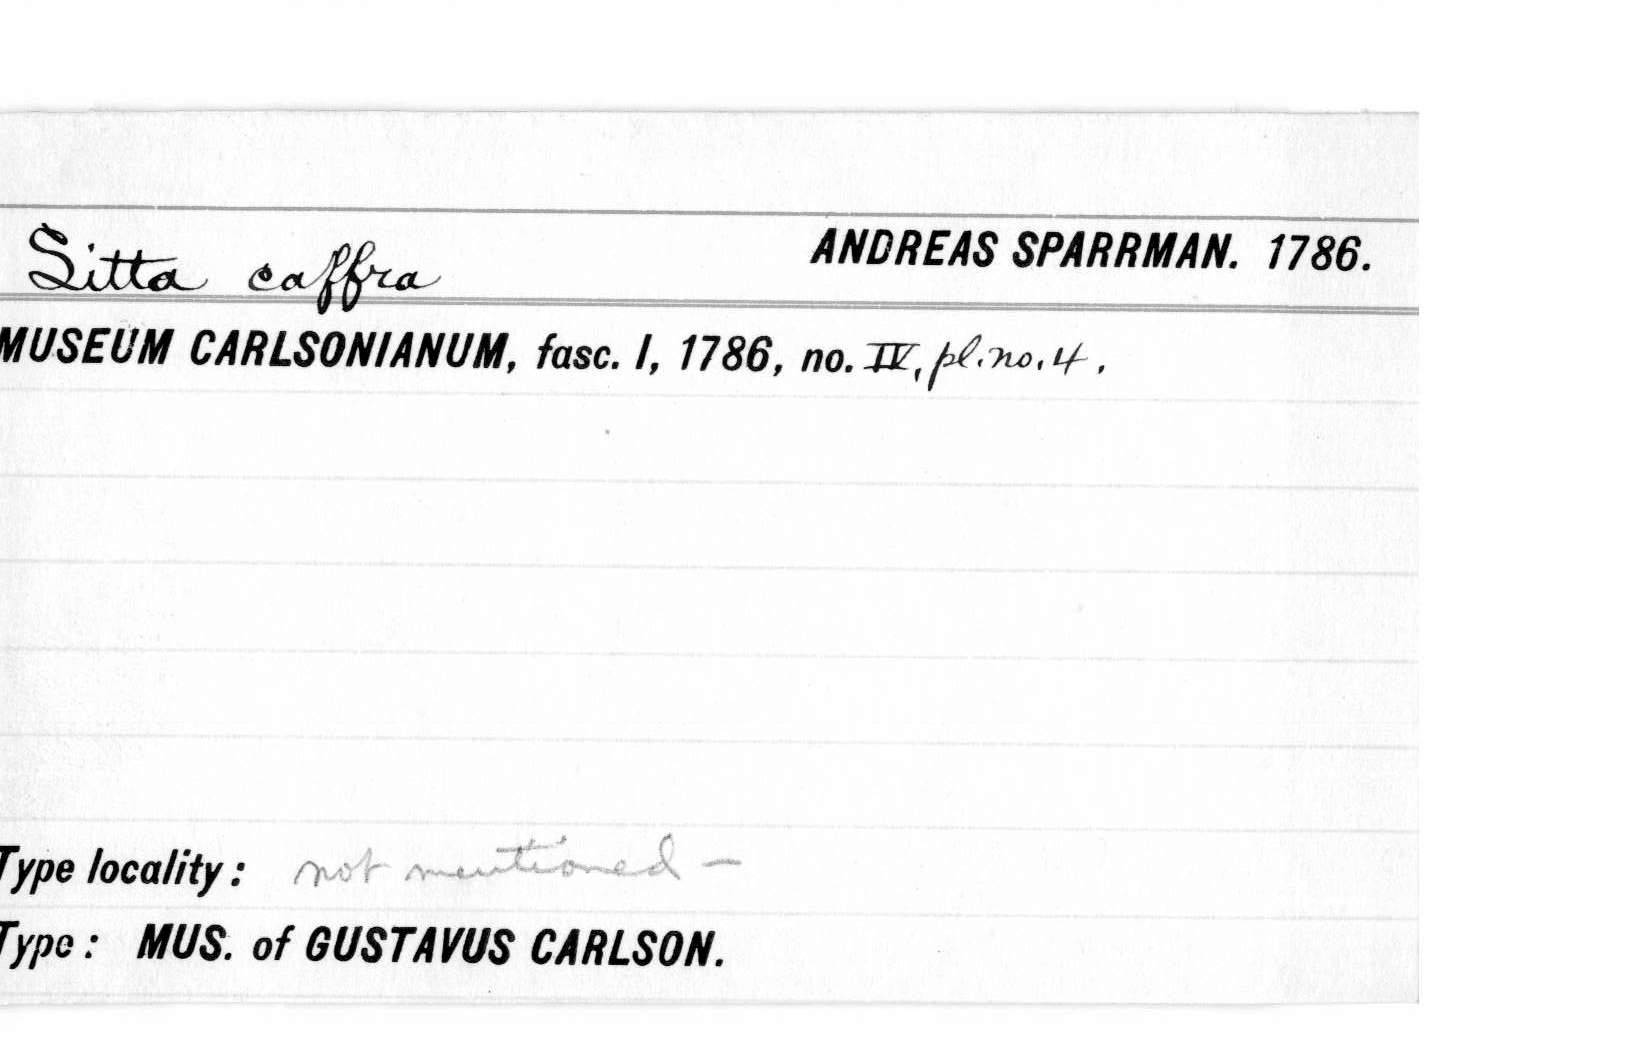 Sitta caffra ANDREAS SPARRMAN. 1786.
MUSEUM CARLSONIANUM, fasc. I, 1786, no. IV, pl. no. 4.
Type locality: not mentioned —
Type: MUS. of GUSTAVUS CARLSON.